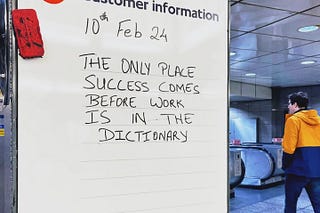 customer information
10th Feb 24
THE ONLY PLACE
SUCCESS COMES
BEFORE WORK
IS IN THE
DICTIONARY